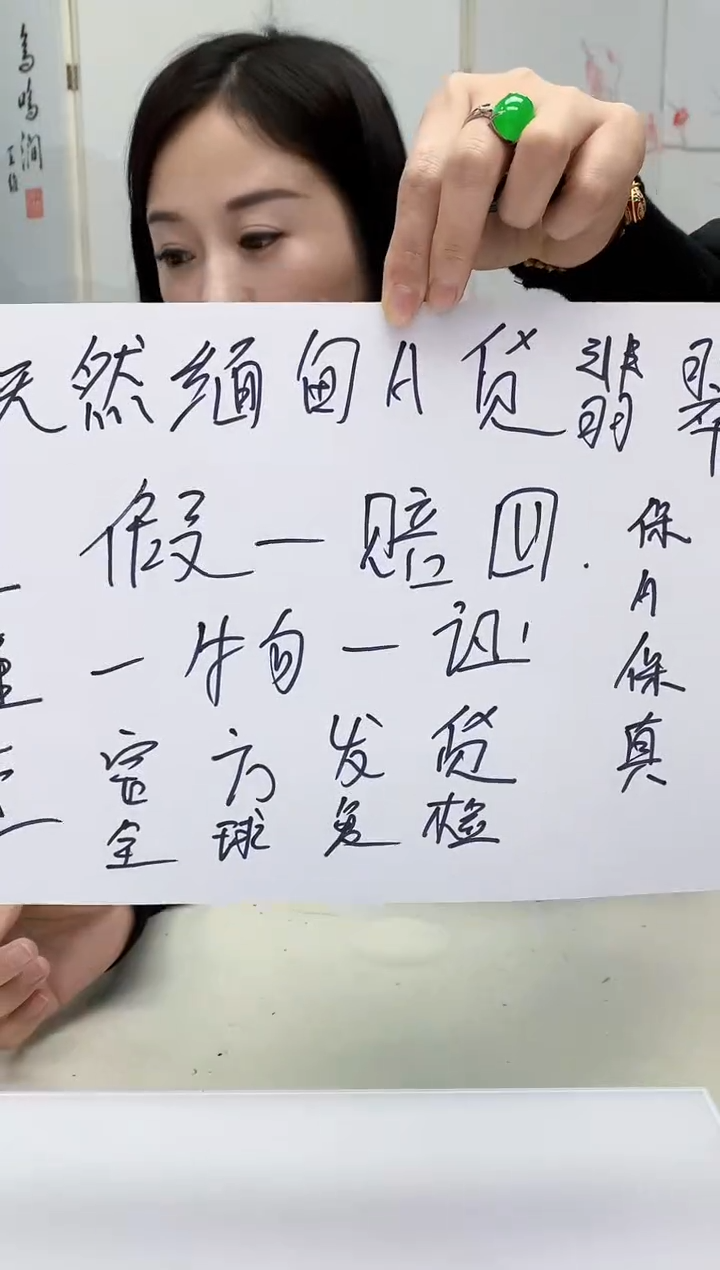 鸟鸣涧
王维
天然缅甸A货翡翠
假一赔四.
一物一证
官方发货
全球复检
保A保真